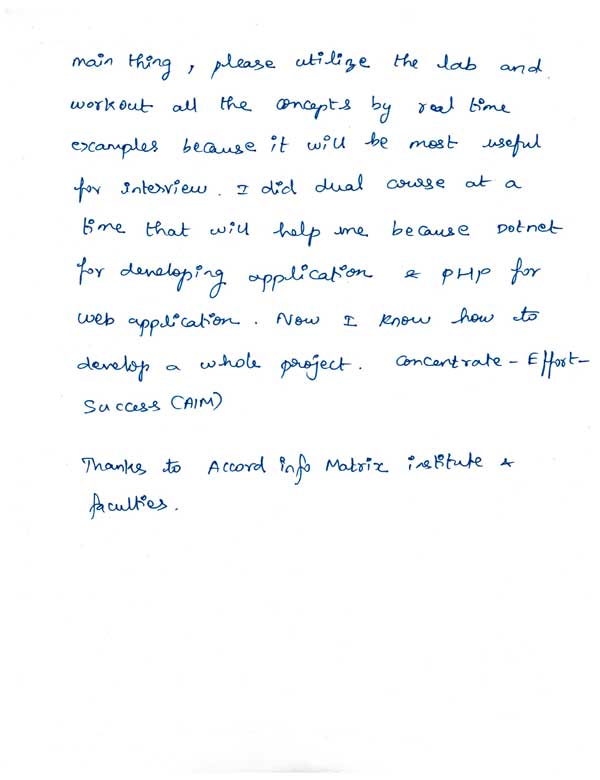 main thing, please utilize the lab and
workout all the concepts by real time
examples because it will be most useful
for interview. I did dual course at a
time that will help me because Dotnet
for developing application & PHP for
web application. Now I know how to
develop a whole project. Concentrate - Effort -
Success (AIM)
Thanks to Accord info Matrix institute &
faculties.